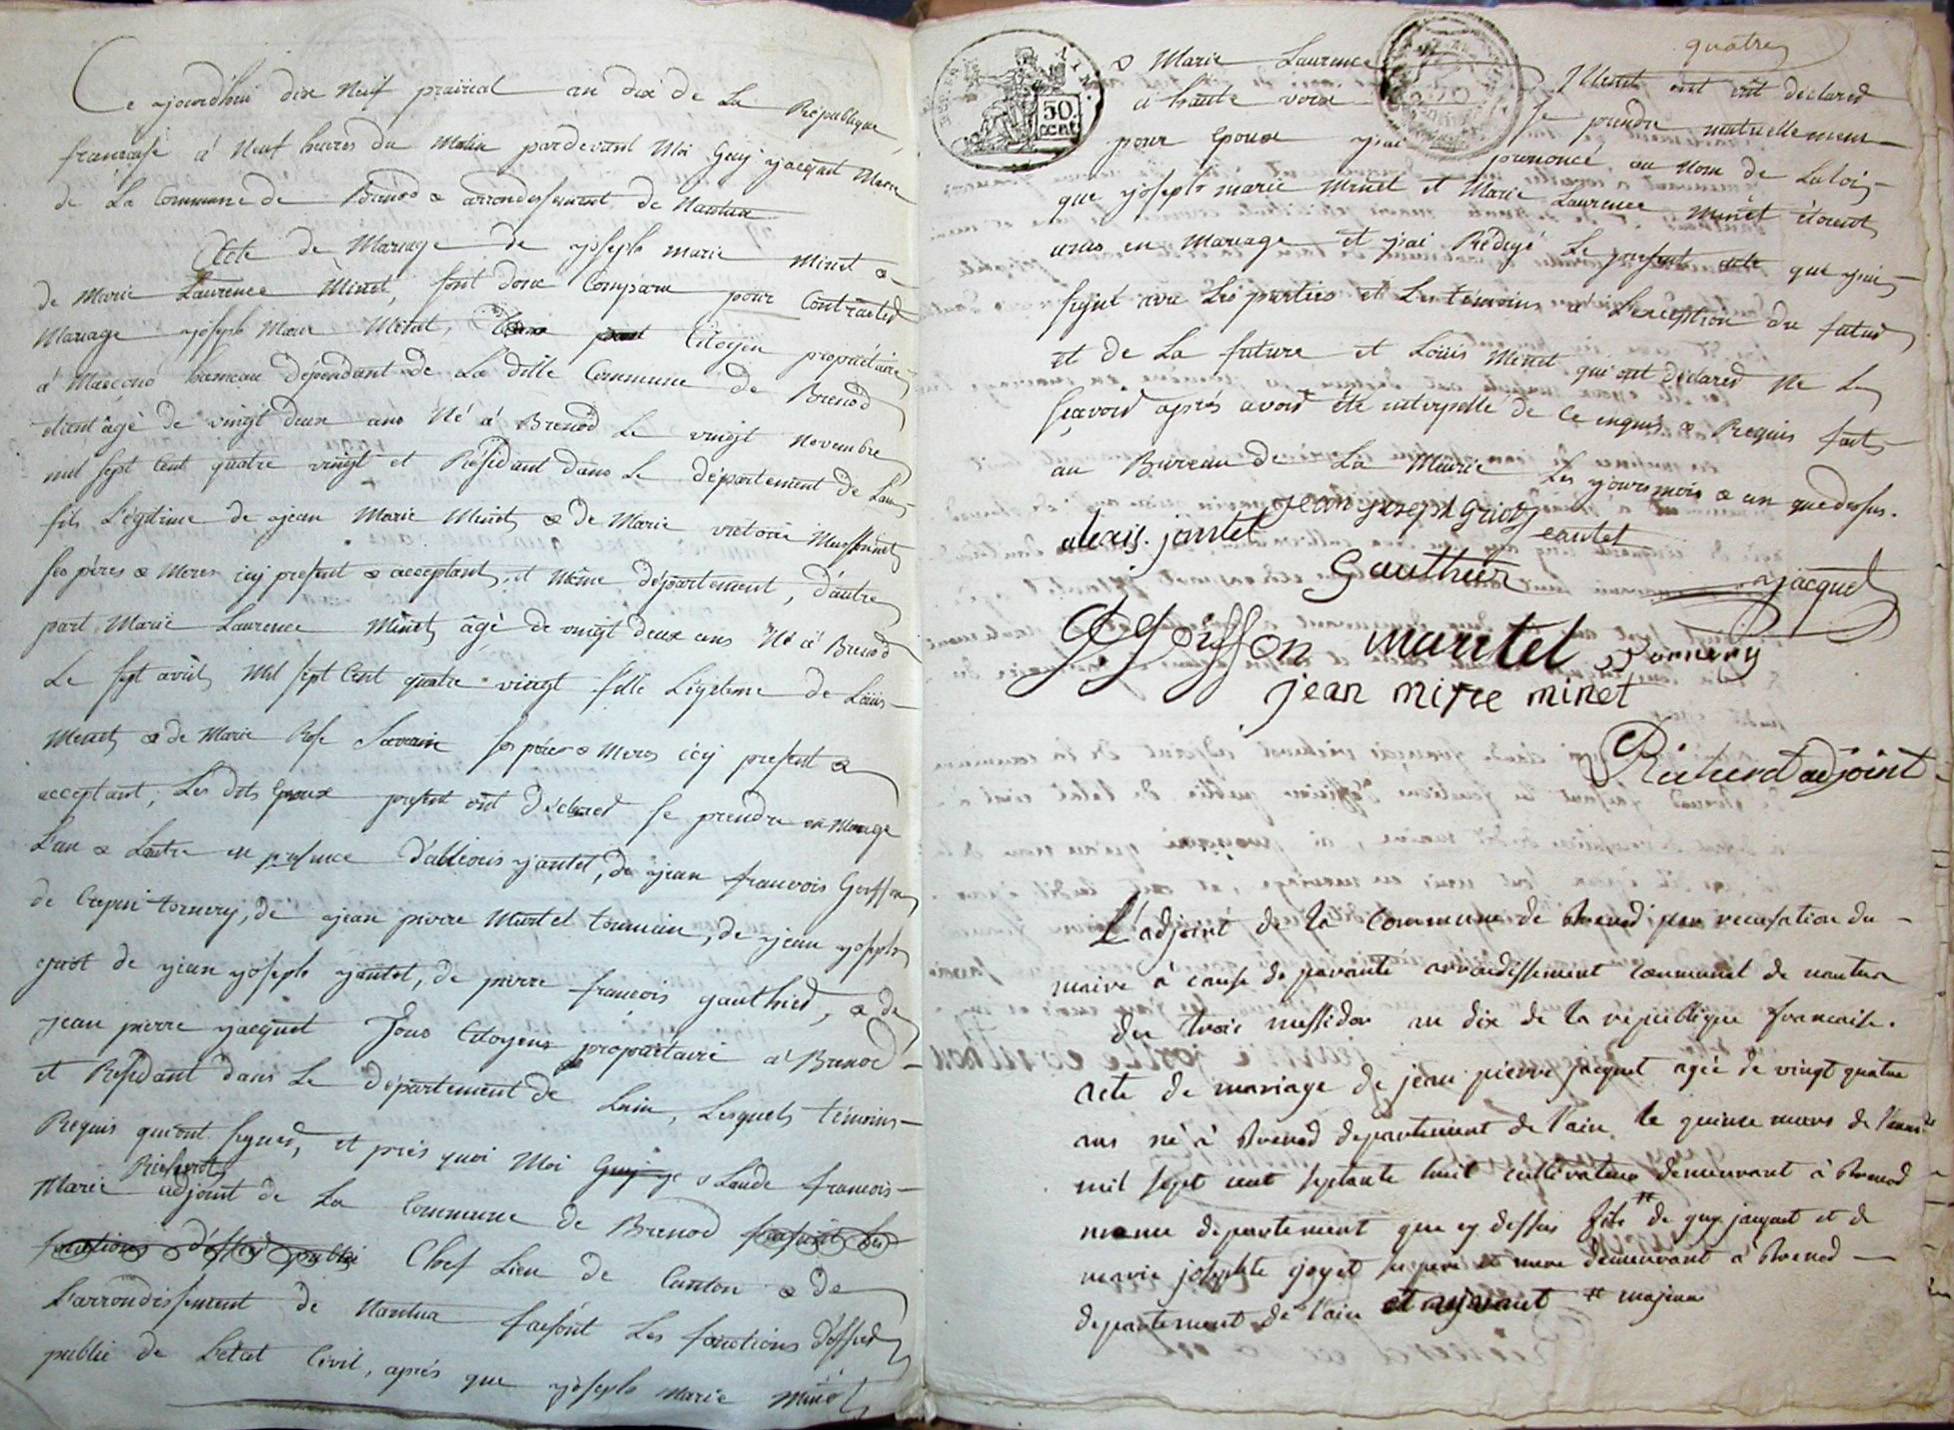 Ce ajourd'hui dix Neuf prairial an dix de La République
francaise à Neuf heures du Matin pardevant Moi Guy jacquet Maire
de La Commune de Brenod & arrondissement de Nantua
Acte de Mariage de joseph marie Minet &
de Marie Laurence Minet, sont donc Comparu pour Contracter
Mariage joseph Marie Minet, Citoyen propriétaire
à Maconod hameau dépendant de La dite Commune de Brenod
étant âgé de vingt deux ans Né à Brenod Le vingt Novembre
mil sept Cent quatre vingt et Résidant dans Le département de Lain
fils Légitime de jean Marie Minet & de Marie victoire
ses pères & Meres icy present & acceptant, et Même département, d'autre
part Marie Laurence Minet âgé de vingt deux ans Né à Brenod
Le sept avril Mil sept Cent quatre vingt fille Légitime de Loüis
Minet & de Marie Rose Savarin ses pères & Meres icy present &
acceptant, Les dits Epoux present ont déclared se prendre en Mariage
L'un & Lautre en presence d'allexis jantet, de jean francois Goiffon
de Crepin tornery, de jean pierre Martel, de jean joseph
griot de jean joseph jantet, de pierre françois gauthier, & de
jean pierre jacquet Tous Citoyens propriétaire à Brenod
et Résidant dans Le département de Lain, Lesquels témoins
Requis qui ont signed, et près quoi Moi Guy je Claude francois
Richerot
Marie adjoint de La Commune de Brenod faisant Les
fonctions d'officier public Chef Lieu de Canton & de
L'arrondissement de Nantua faisant Les fonctions d'officier
public de L'etat Civil, après que joseph Marie Minet
quatre
50
cent
& Marie Laurence Minet ont ont déclared
à haute voix se prendre mutuellement
pour Epoux j'ai prononcé au Nom de La loi
que joseph marie Minet et Marie Laurence Minet étoient
unis en Mariage et j'ai Rédigé Le présent acte que j'ai
signé avec Les parties et Les témoins a L'exception du futur
et de La future et Loüis Minet qui ont déclared Ne Le
sçavoir après avoir été interpellé de Ce enquis & Requis fait
au Bureau de La Mairie Les jours mois & an que dessus.
jean joseph Griot
alexis. jantet jantet
Gauthier
jacquet
Goiffon martel Tornery
jean mire minet
Richerot adjoint
L'adjoint de la Commune de brenod par recusation du
maire à cause de parenté arrondissement communal de nantua
du trois messidor an dix de la republique francaise.
acte de mariage de jean pierre jacquet agée de vingt quatre
ans né à brenod departement de l'ain le quinze mars de l'année
mil sept cent septante huit cultivateur demeurant à brenod
meme departement que cy dessus fils # de guy jacquet et de
marie josephte goyet ses pere et mere demeurant à brenod
departement de l'ain # majeur